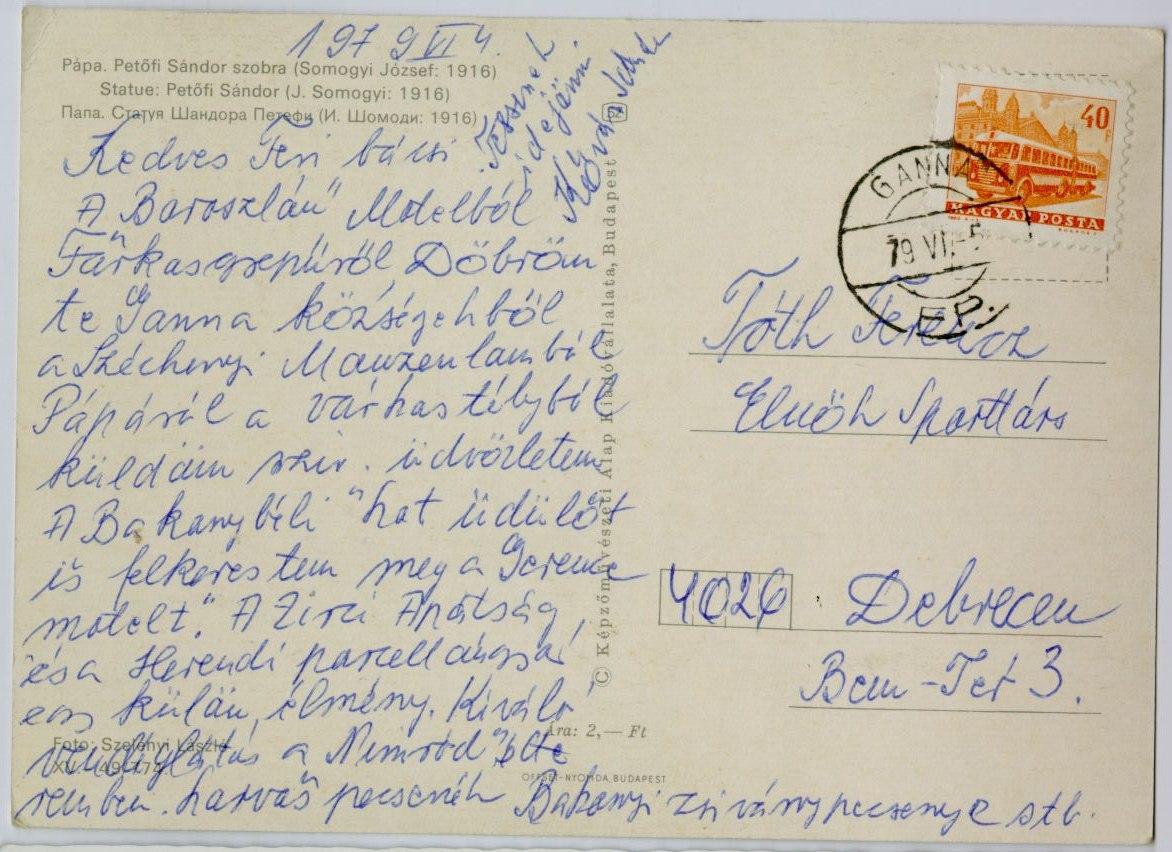 1979 VI 4.
Pápa. Petőfi Sándor szobra (Somogyi József: 1916)
Statue: Petőfi Sándor (J. Somogyi: 1916)
Папа. Статуя Шандора Петефи (И. Шомоди: 1916)
Kedves Feri bácsi
A Baroszlán" Motelból
Farkasgyepüről Döbrön
te Ganna községekből
a Széchenyi Mauzoleumból
Pápáról a várkastélyból
küldöm sziv. üdvözletem
A Bakonybéli "hat üdülőt
is felkerestem meg a Gerence
motelt." A Zirci Apátság
és a Herendi porcellángyár
egy külön élmény. Kiváló
vendéglátás a Nimród" étte
remben. Szarvas pecsenék Bakonyi zsiványpecsenye stb.
Tessenek
ide jönni
Foto: Szelényi László
Ára: 2,— Ft
OFFSET-NYOMDA, BUDAPEST
© Képzőművészeti Alap Kiadóvállalata, Budapest
40 F
MAGYAR POSTA
GANNA
79 VI-5
EP.
Tóth Ferencz
Elnök Sporttárs
4026 Debrecen
Bem-Tér 3.